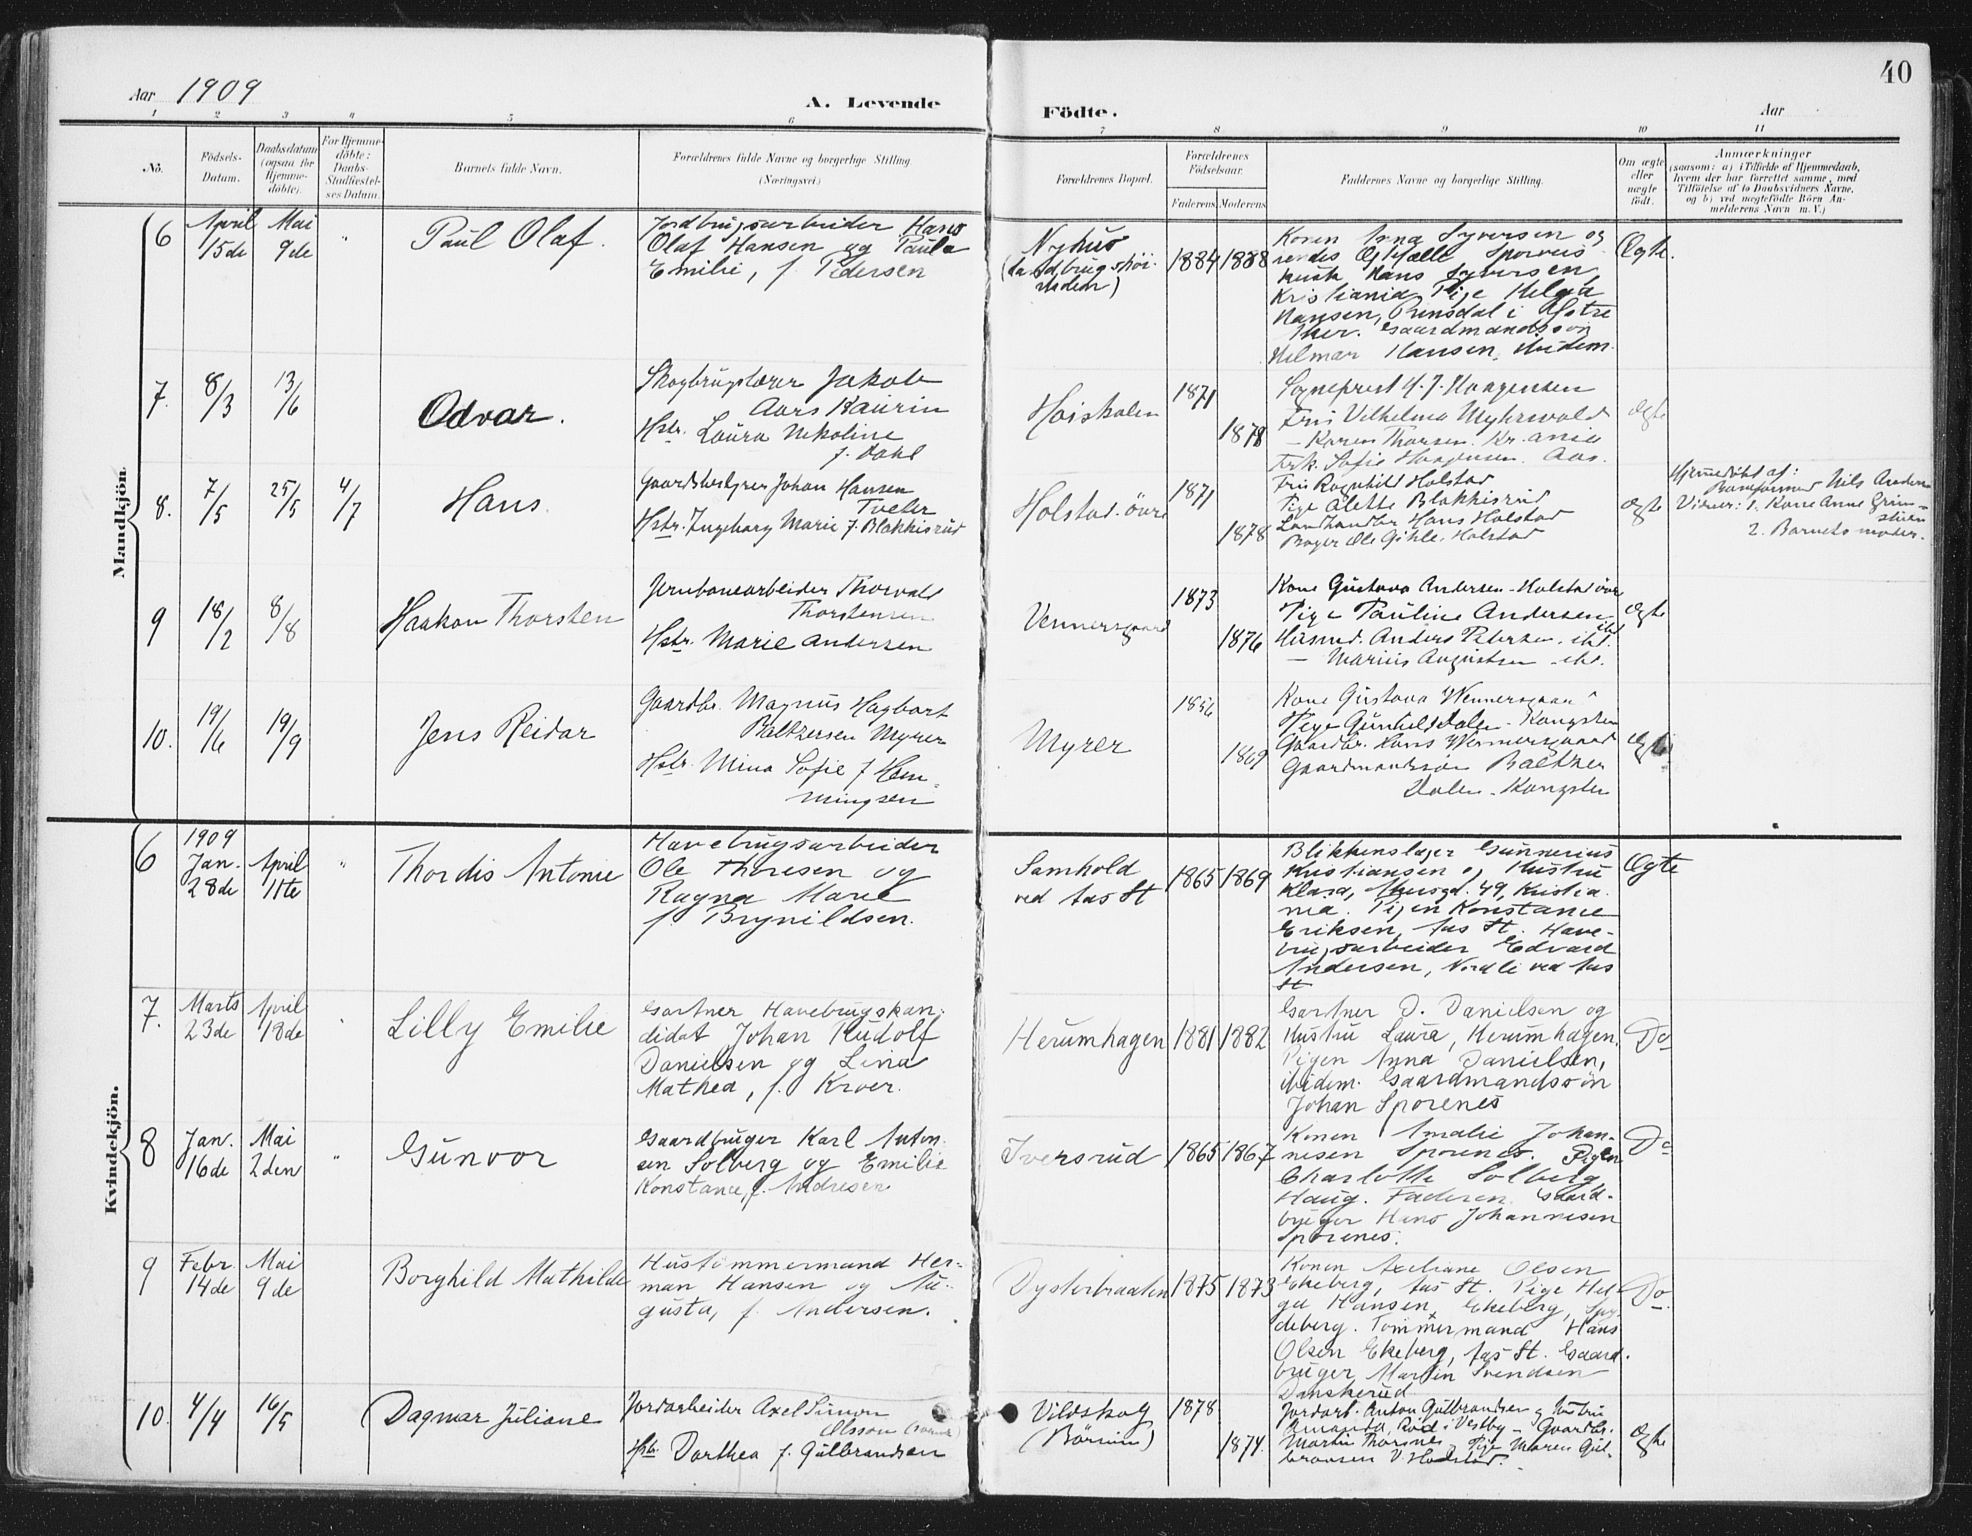 Aar 1909
A. Levende
Födte.
Aar
40
1 2 3 4 5 6 7 8 9 10 11
No.
Födsels-
Datum.
Daabsdatum
(ogsaa for
Hjemme-
döbte).
For Hjemme-
döbte:
Daabs-
Stadfæstel-
ses Datum.
Barnets fulde Navn.
Forældrenes fulde Navne og borgerlige Stilling
(Næringsvei.)
Forældrenes Bopæl.
Forældrenes
Födselsaar.
Faderens. Moderens.
Faddernes Navne og borgerlige Stilling.
Om ægte
eller
uægte
födt.
Anmærkninger
(saasom: a) i Tilfælde af Hjemmedaab,
hvem der har forrettet samme, med
Tilföielse af to Daabsvidners Navne,
og b) ved uægtefödte Börn An-
melderens Navn m. V.)
Mandkjön.
6
April
15de
Mai
9de
"
Paul Olaf.
Jordbrugsarbeider Hans
Olaf Hansen og Paula
Emilie, f. Pedersen
Nyhus
1884 1888
Konen Anna Syversen og
Hans Syversen,
Kristiania, Pige Helga
Hansen, i Østre
Aker. Gaardmandssøn
Hilmar Hansen, ibidem.
Ægte.
7.
8/3
13/6
Odvar.
Skogbrugslærer Jakob
Aars Kaurin
Hstr. Laura Nikoline
f. Dahl
Høiskolen
1871
1878
Sogneprest H. J. Haagensen
Frk Vilhelmia Myhrwold
— Karen Thorsen. Kr.ania
Frk. Sofie Haagensen. Aas.
ægte
8.
7/5
25/5
4/7
Hans.
Gaardbestyrer Johan Hansen
Tveter
Hstr. Ingeborg Marie f. Blakkisrud
Holstad. øvre
1871
1878
Frk Ragnhild Holstad
Pige Alette Blakkisrud
Landhandler Hans Holstad
Bager Ole Gihle, Holstad
ægte
Hjemmedøbt af:
Nils
Vidner: 1. Kone Anne Grim-
stuen
2. Barnets moder.
9
18/2
8/8
Haakon Thorsten
Jernbanearbeider Thorvald
Thorstensen
Hstr. Marie Andersen
Vennersgaard
1873
1876
Kone Gustava Andersen - Holstad øvre
Pige Pauline Andersen
ibd.
Husmd. Anders Petersen - ibd.
— Marius Augustsen - ibd.
ægte
10.
19/6
19/9
Jens Reidar
Gaardbr. Magnus Hagbart
Baltzersen Myrer
Hstr. Mina Sofie f. Hem-
mingsen
Myrer
1856
1869
Kone Gustava Wennersgaard
Pige Gunhild Dalen - Kongsten
Gaardbr. Hans Wennersgaard
Gaardmandssøn Baltzer
Dalen - Kongsten
ægte
Kvindekjön.
6
1909
Jan.
28de
April
11te
"
Thordis Antonie
Havebrugsarbeider
Ole Thoresen og
Ragna Marie
f. Brynildsen.
Samhold
ved Aas St
1865 1869
Blikkenslager Gunnerius
Kristiansen og Hustru
Klara, 49, Kristia-
nia. Pigen Konstance
Eriksen, Aas St. Have-
brugsarbeider Edvard
Andersen, Nordli ved Aas
St
Ægte
7.
Marts
23de
April
18de
Lilly Emilie
Gartner Havebrugskan-
didat Johan Rudolf
Danielsen og Lina
Mathea, f. Kroer.
Herumhagen
1881 1882
Gartner D. Danielsen og
Hustru Laura, Herumhagen.
Pigen Anna Danielsen,
ibidem. Gaardmandssøn
Johan Sporenes
Do
8
Jan.
16de
Mai
2den
"
Gunvor
Gaardbruger Karl Anton-
sen Solberg og Emilie
Konstance, f. Andresen
Iversrud
1865 1867
Konen Amalie Johan-
nesen Sporenes. Pigen
Charlotte Solberg
Haug. Faderen. Gaard-
bruger Hans Johannesen
Sporenes.
Do
9
Febr.
14de
Mai
9de
Borghild Mathilde
Hustømmermand Her-
man Hansen og Au-
gusta, f. Andersen.
Dysterbraaten
1875 1873
Konen Axeliane Olsen
Ekeberg, Aas St. Pige Hel-
ga Hansen, Ekeberg, Spy-
deberg. Tømmermand Hans
Olsen Ekeberg, Aas St. Gaard-
bruger Martin Svendsen
Danskerud
Do
10.
4/4
16/5
Dagmar Juliane
Jordarbeider Axel Simon
Olsson
Hstr. Dorthea f. Gulbrandsen
Vildskog
(Børsum)
1878
1874.
Jordarb. Anton Gulbrandsen og Hustru
Amanda, Rød i Vestby - Gaardbr.
Martin Pige Maren Gul-
brandsen V. Holstad.
ægte